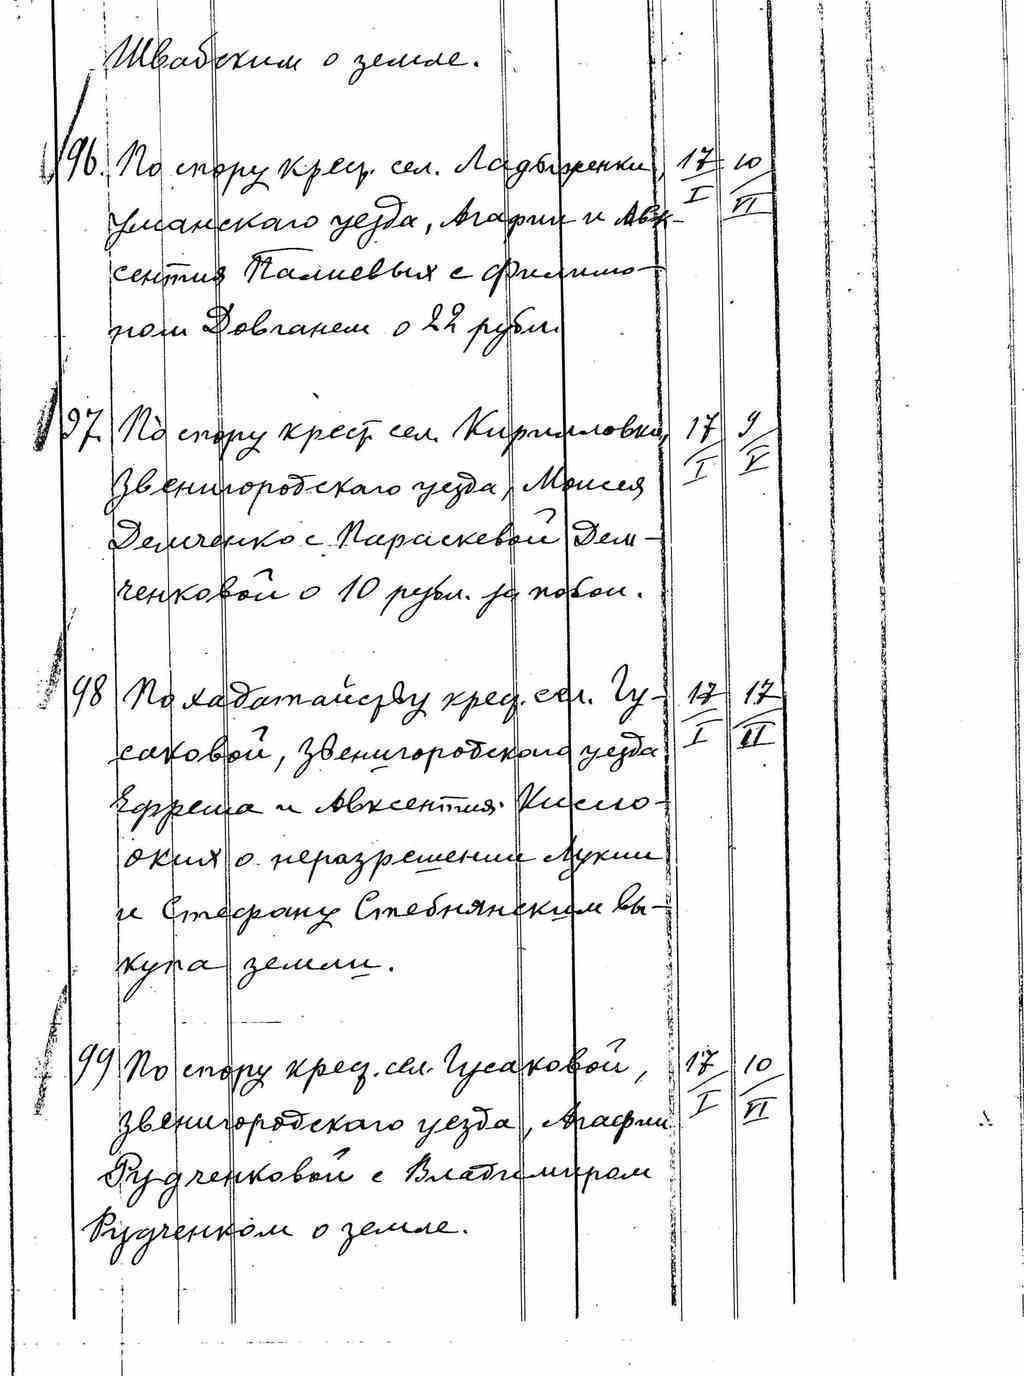 Швабским о земле.
96. По спору крест. сел. Ладыженки, 17/I 10/VI
Уманскаго уезда, Агафии и Авк-
сентия Палиевых с Филимо-
ном Довганем о 22 рубл.
97. По спору крест. сел. Кирилловки, 17/I 9/V
Звенигородскаго уезда, Моисея
Демченко с Параскевой Дем-
ченковой о 10 рубл. за побои.
98 По хадатайству крест. сел. Гу- 17/I 17/II
саковой, Звенигородскаго уезда
Ефрема и Авксентия
о неразрешении Лукии
и Стефану Стебнянским вы-
купа земли.
99 По спору крест. сел. Гусаковой, 17/I 10/VI
Звенигородскаго уезда, Агафии
Рудченковой с Владимиром
Рудченком о земле.